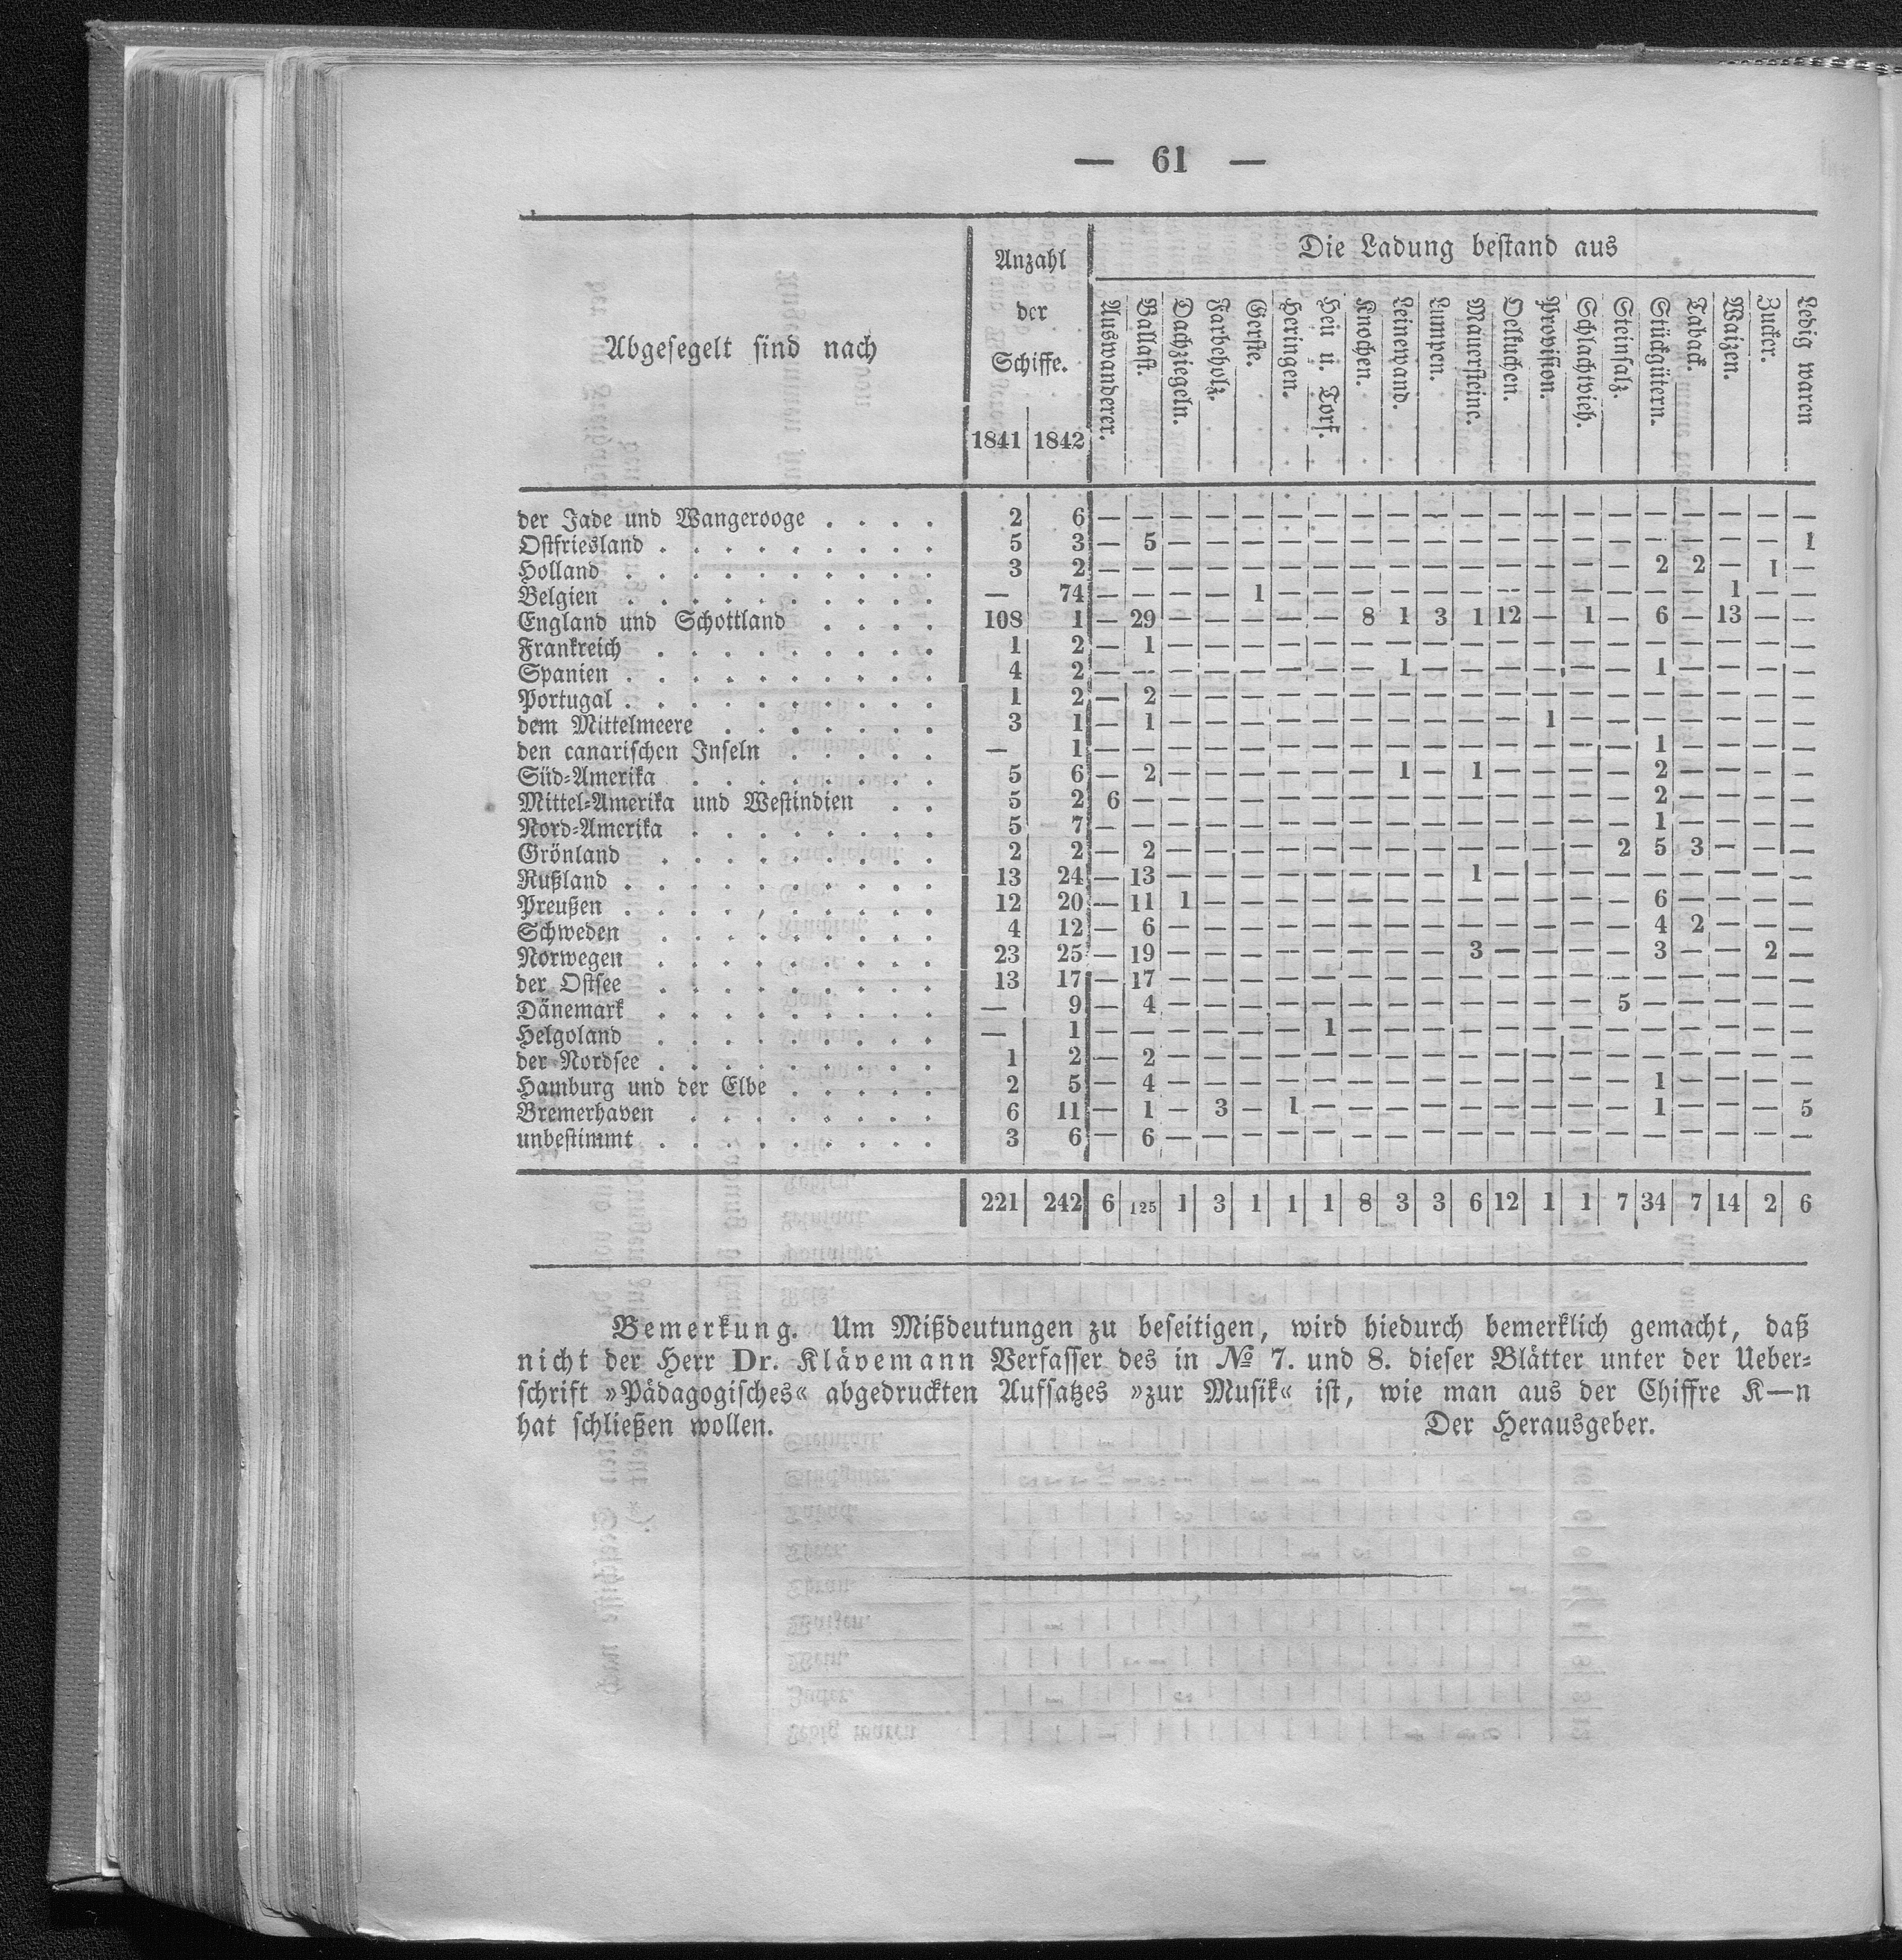 — 61 —
Abgesegelt sind nach
Anzahl
der
Schiffe.
1841 1842
Die Ladung bestand aus
Auswanderer.
Ballast.
Dachziegeln.
Farbeholz.
Gerste.
Heringen.
Heu u. Torf.
Knochen.
Leinewand.
Lumpen.
Mauersteine.
Oelkuchen.
Provision.
Schlachtvieh.
Steinsalz.
Stückgütern.
Taback.
Waizen.
Zucker.
Ledig waren
der Jade und Wangerooge . . . . 2 6 — — — — — — — — — — — — — — — — — — — —
Ostfriesland . . . . . . . . . 5 3 — 5 — — — — — — — — — — — — — — — — — 1
Holland . . . . . . . . . . 3 2 — — — — — — — — — — — — — — — 2 2 — 1 —
Belgien . . . . . . . . . . — 74 — — — — 1 — — — — — — — — — — — — 1 — —
England und Schottland . . . . 108 1 — 29 — — — — — 8 1 3 1 12 — 1 — 6 — 13 — —
Frankreich . . . . . . . . . 1 2 — 1 — — — — — — — — — — — — — — — — — —
Spanien . . . . . . . . . . 4 2 — — — — — — — — 1 — — — — — — 1 — — — —
Portugal . . . . . . . . . . 1 2 — 2 — — — — — — — — — — — — — — — — — —
dem Mittelmeere . . . . . . . 3 1 — 1 — — — — — — — — — — 1 — — — — — — —
den canarischen Inseln . . . . . — 1 — — — — — — — — — — — — — — — 1 — — — —
Süd-Amerika . . . . . . . . 5 6 — 2 — — — — — — 1 — 1 — — — — 2 — — — —
Mittel-Amerika und Westindien . . 5 2 6 — — — — — — — — — — — — — — 2 — — — —
Nord-Amerika . . . . . . . . 5 7 — — — — — — — — — — — — — — — 1 — — — —
Grönland . . . . . . . . . 2 2 — 2 — — — — — — — — — — — — 2 5 3 — — —
Rußland . . . . . . . . . . 13 24 — 13 — — — — — — — — 1 — — — — — — — — —
Preußen . . . . . . . . . . 12 20 — 11 1 — — — — — — — — — — — — 6 — — — —
Schweden . . . . . . . . . 4 12 — 6 — — — — — — — — — — — — — 4 2 — — —
Norwegen . . . . . . . . . 23 25 — 19 — — — — — — — — 3 — — — — 3 — — 2 —
der Ostsee . . . . . . . . . 13 17 — 17 — — — — — — — — — — — — — — — — — —
Dänemark . . . . . . . . . — 9 — 4 — — — — — — — — — — — — 5 — — — — —
Helgoland . . . . . . . . . — 1 — — — — — — 1 — — — — — — — — — — — — —
der Nordsee . . . . . . . . . 1 2 — 2 — — — — — — — — — — — — — — — — — —
Hamburg und der Elbe . . . . . 2 5 — 4 — — — — — — — — — — — — — 1 — — — —
Bremerhaven . . . . . . . . 6 11 — 1 — 3 — 1 — — — — — — — — — 1 — — — 5
unbestimmt . . . . . . . . . 3 6 — 6 — — — — — — — — — — — — — — — — — —
221 242 6 125 1 3 1 1 1 8 3 3 6 12 1 1 7 34 7 14 2 6
Bemerkung. Um Mißdeutungen zu beseitigen, wird hiedurch bemerklich gemacht, daß
nicht der Herr Dr. Klävemann Verfasser des in № 7. und 8. dieser Blätter unter der Ueber-
schrift »Pädagogisches« abgedruckten Aufsatzes »zur Musik« ist, wie man aus der Chiffre K—n
hat schließen wollen. Der Herausgeber.